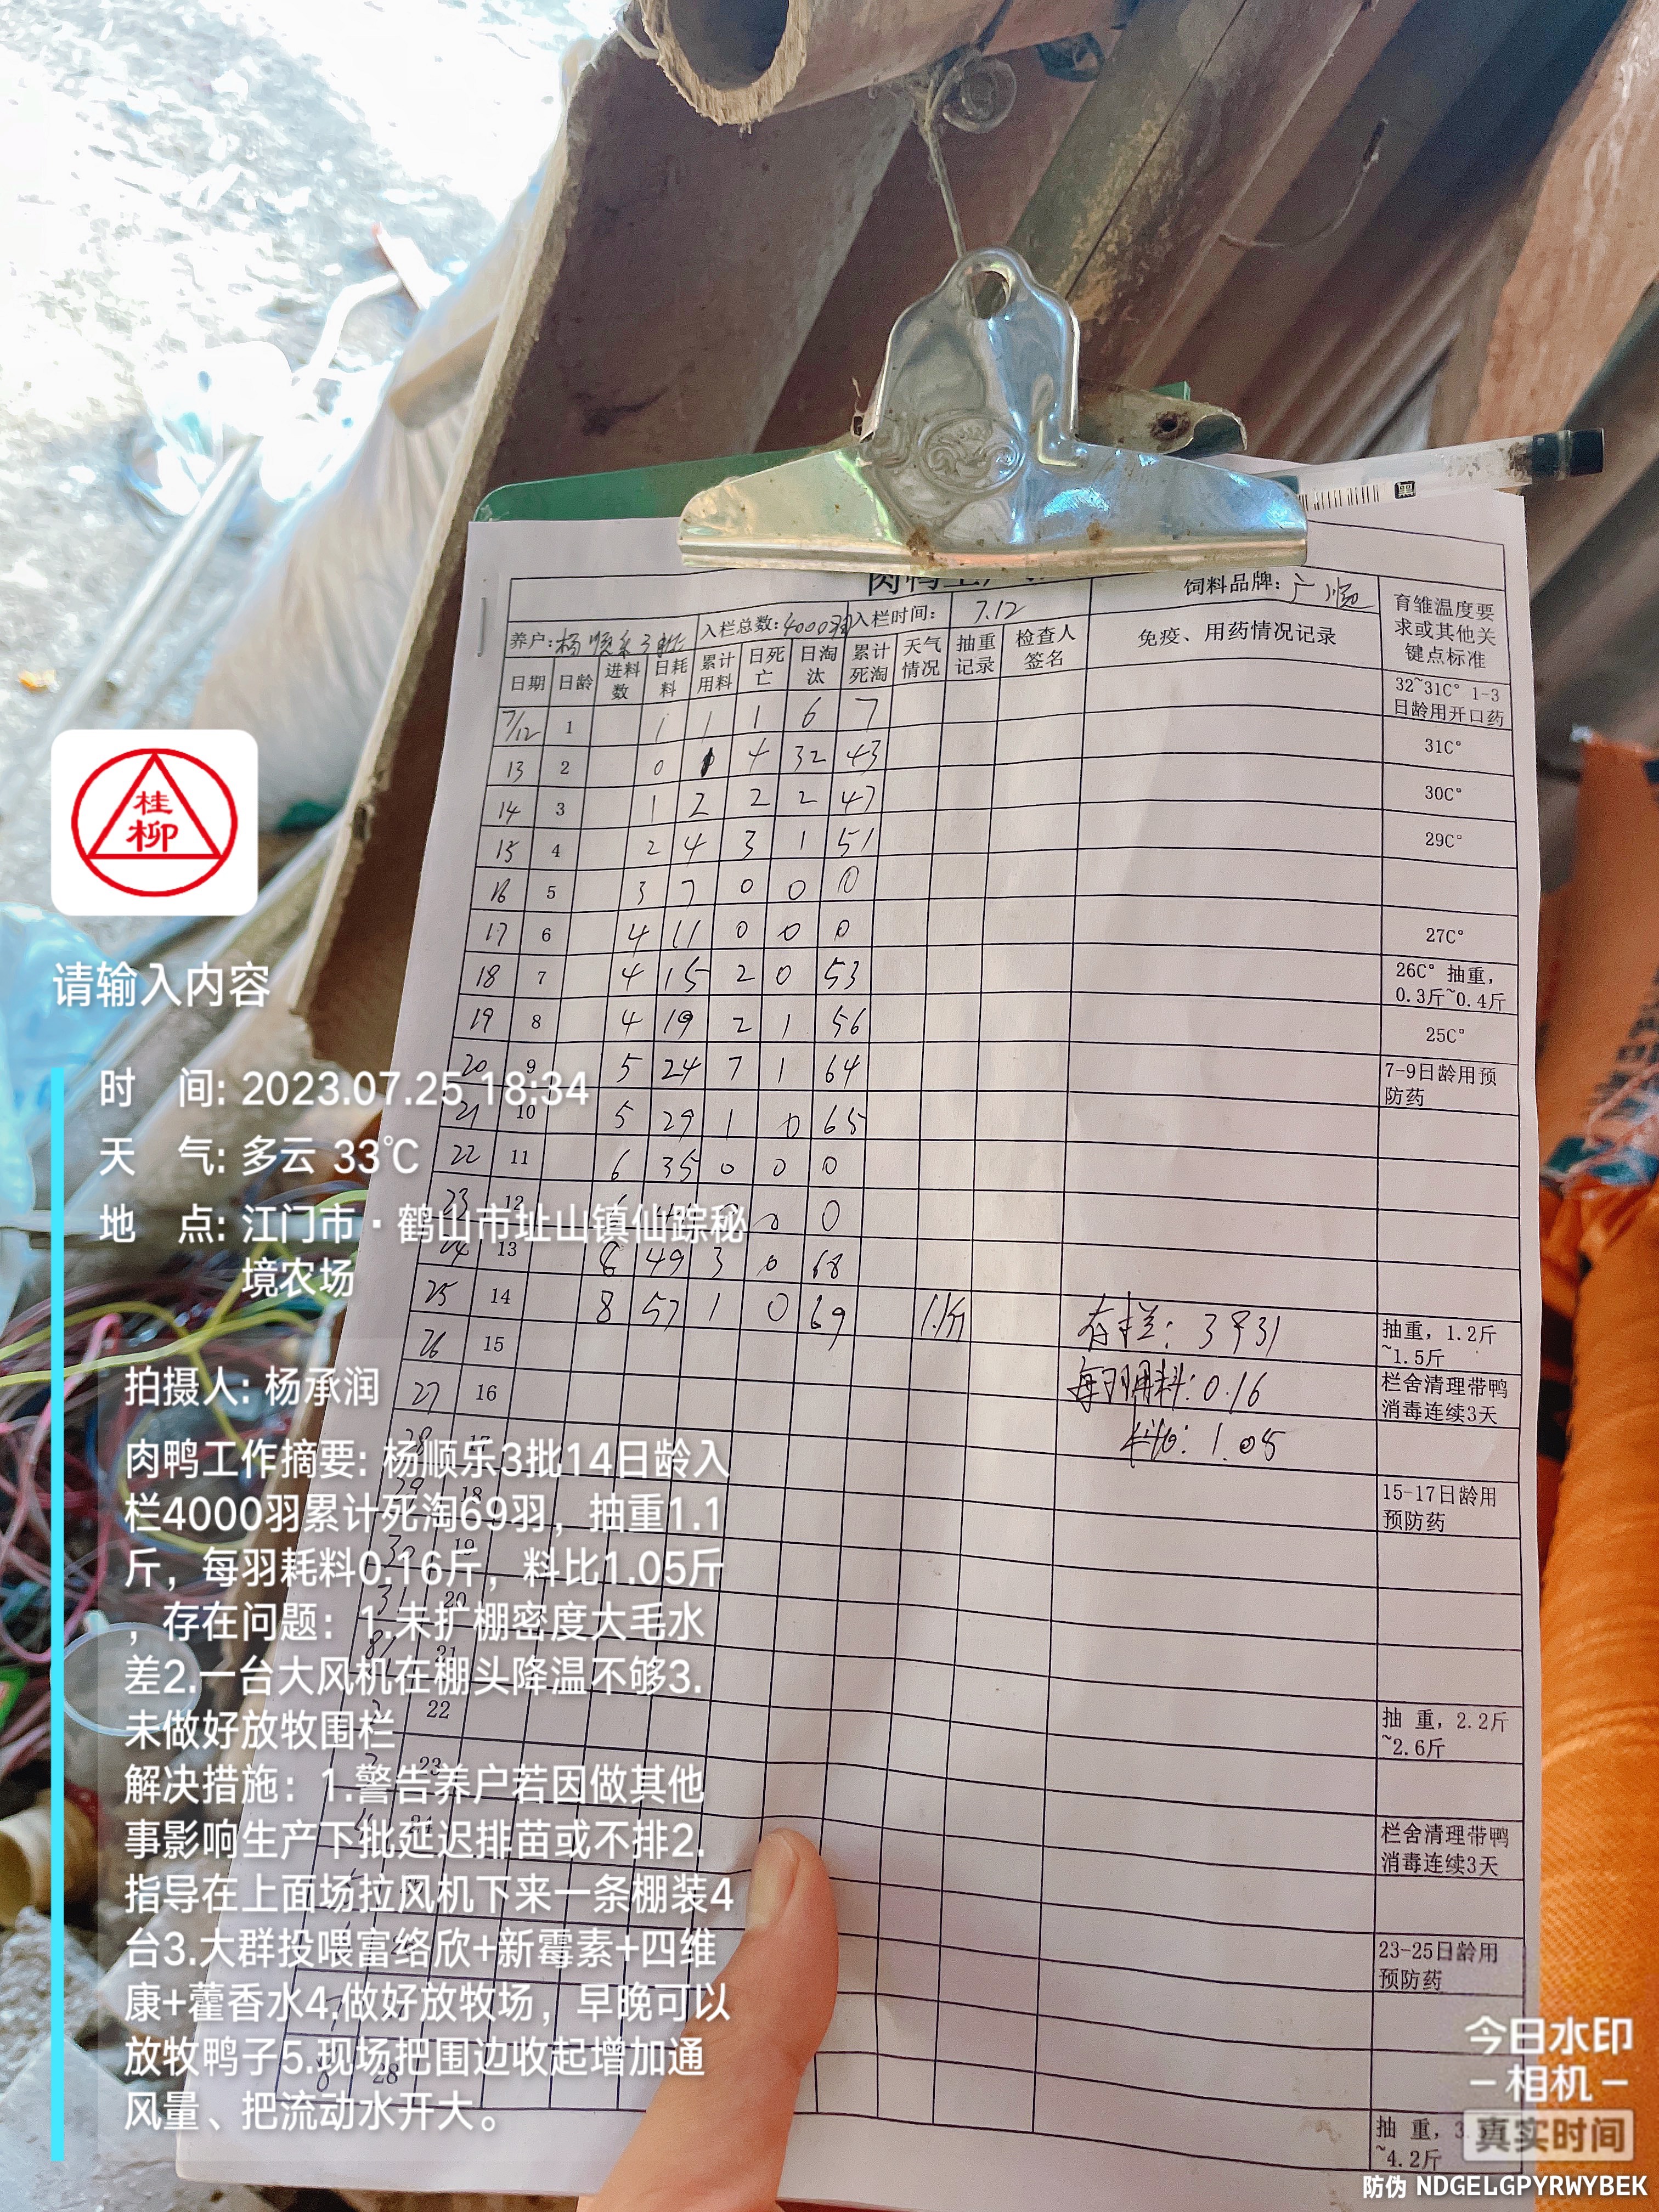 养户:杨顺乐3批
入栏总数:4000羽
入栏时间: 7.12
饲料品牌:广顺
育雏温度要求或其他关键点标准
日期 日龄 进料数 日耗料 累计用料 日死亡 日淘汰 累计死淘 天气情况 抽重记录 检查人签名 免疫、用药情况记录
7/12 1 1 1 1 6 7 32~31C° 1-3日龄用开口药
13 2 0 4 32 43 31C°
14 3 1 2 2 2 47 30C°
15 4 2 4 3 1 51 29C°
16 5 3 7 0 0 0
17 6 4 11 0 0 0 27C°
18 7 4 15 2 0 53 26C° 抽重,0.3斤~0.4斤
19 8 4 19 2 1 56 25C°
20 9 5 24 7 1 64 7-9日龄用预防药
21 10 5 29 1 0 65
22 11 6 35 0 0 0
23 12 0 0
24 13 49 3 0 68
25 14 8 57 1 0 69 1.1斤 存栏: 3931 抽重, 1.2斤~1.5斤
26 15 每羽用料: 0.16 栏舍清理带鸭消毒连续3天
27 16 料比: 1.05
28 17
29 18 15-17日龄用预防药
30 19
31 20
21
22 抽 重, 2.2斤~2.6斤
23
24 栏舍清理带鸭消毒连续3天
23-25日龄用预防药
8 28
抽 重, 3.
~4.2斤
桂
柳
请输入内容
时 间: 2023.07.25 18:34
天 气: 多云 33℃
地 点: 江门市·鹤山市址山镇仙踪秘
境农场
拍摄人: 杨承润
肉鸭工作摘要: 杨顺乐3批14日龄入
栏4000羽累计死淘69羽，抽重1.1
斤，每羽耗料0.16斤，料比1.05斤
，存在问题：1.未扩棚密度大毛水
差2.一台大风机在棚头降温不够3.
未做好放牧围栏
解决措施：1.警告养户若因做其他
事影响生产下批延迟排苗或不排2.
指导在上面场拉风机下来一条棚装4
台3.大群投喂富络欣+新霉素+四维
康+藿香水4,做好放牧场，早晚可以
放牧鸭子5.现场把围边收起增加通
风量、把流动水开大。
今日水印
相机
真实时间
防伪 NDGELGPYRWYBEK